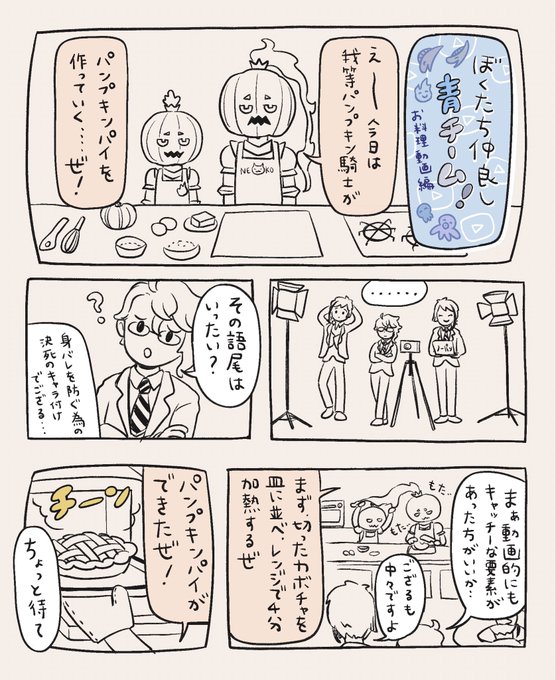 ぼくたち仲良し
青チーム!
お料理動画編
え――今日は
我等パンプキン騎士が
パンプキンパイを
作っていく....ぜ!
NE KO
......
その語尾は
いったい?
?
身バレを防ぐ為の
決死のキャラ付け
でござる...
まぁ動画的にも
キャッチーな要素が
あったちがいいか..
もた..
もた..
ござるも
中々ですよ
まず切ったカボチャを
皿に並べ、レンジで4分
加熱するぜ
チーン
パンプキンパイが
できたぜ!
ちょっと待て